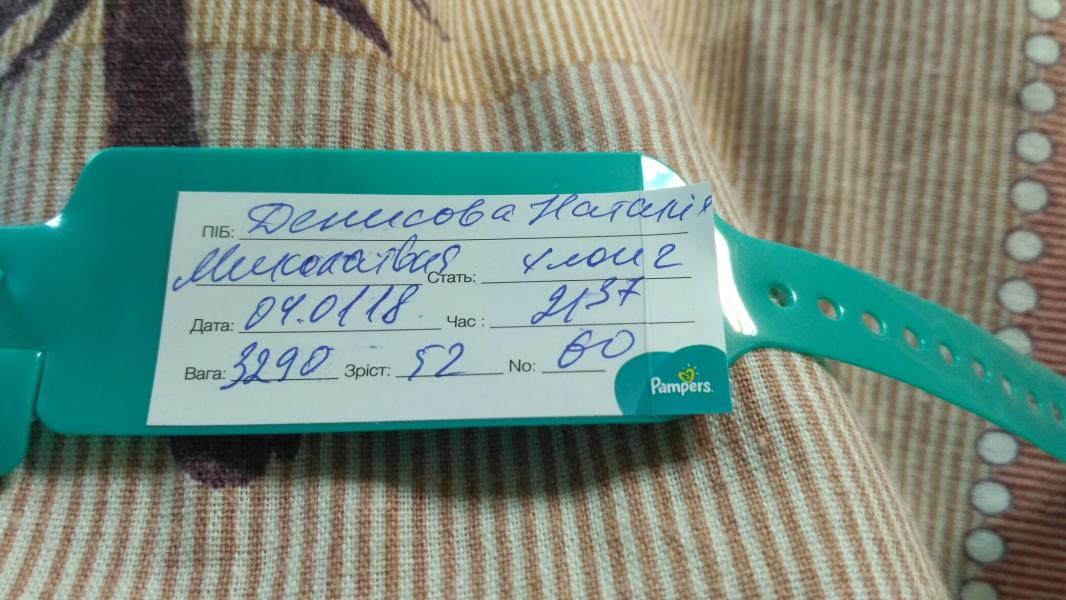 ПІБ: Денисова Наталія
Миколаївна Стать: хлопч
Дата: 04.01 18 Час : 2137
Вага: 3290 Зріст: 52 No: 60
Pampers.